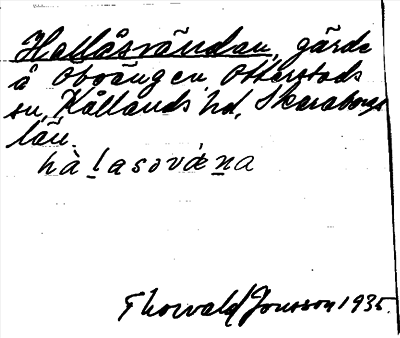 Hallåsvändan, gärde
å Obvängen, Otterstads
sn, Kållands hd, Skaraborgs
län.
hàlasəvǽna
Thorvald Jonsson 1935.